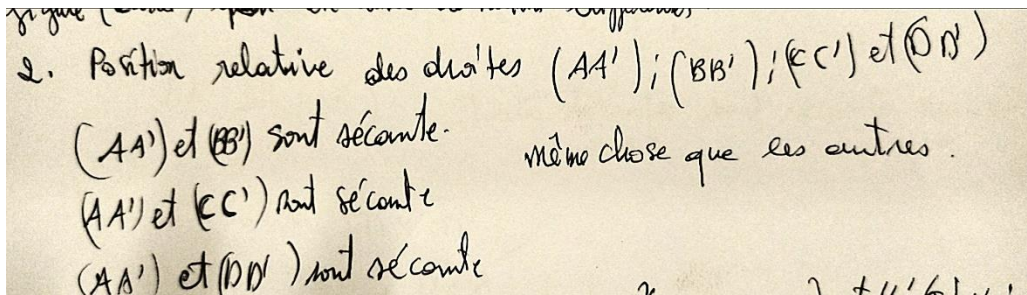 figure
2. Position relative des droites (AA') ; (BB') ; (CC') et (DD')
(AA') et (BB') sont sécante.
même chose que les autres.
(AA') et (CC') sont sécante
(AA') et (DD') sont sécante